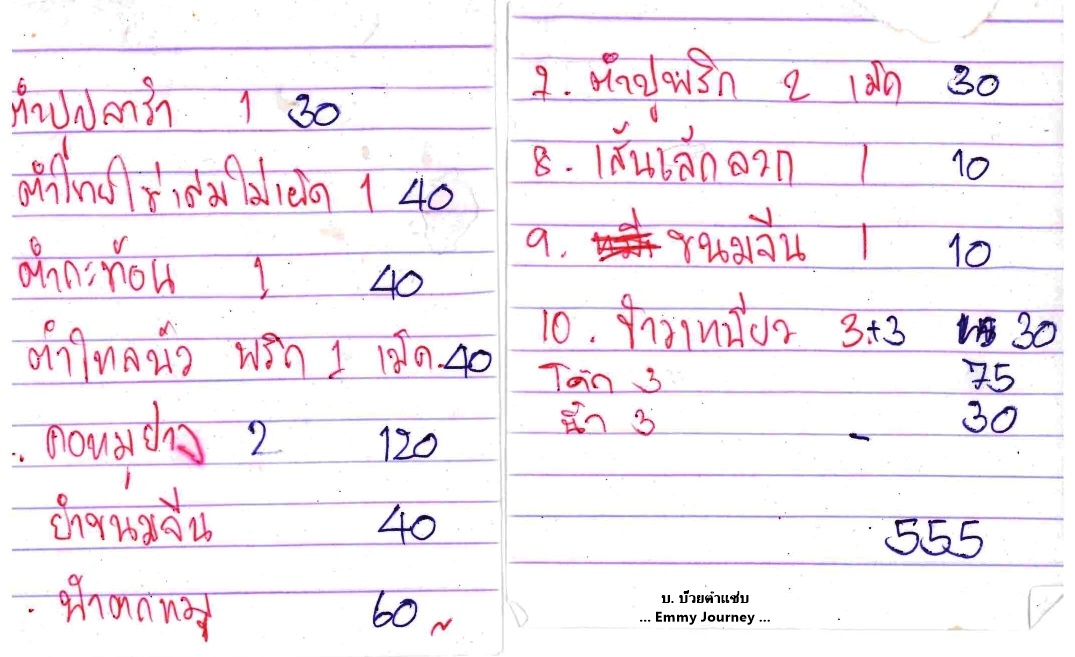 ตำปูปลาร้า 1 30
ตำไทยไข่เค็มไม่เผ็ด 1 40
ตำกะท้อน 1 40
ตำไหลบัว พริก 1 เม็ด 40
คอหมูย่าง 2 120
ยำขนมจีน 40
น้ำตกหมู 60
7. ตำปูพริก 2 เม็ด 30
8. เส้นเล็กลวก 1 10
9. ขนมจีน 1 10
10. ข้าวเหนียว 3+3 30
โค้ก 3 75
น้ำ 3 30
555
บ. บ๊วยตำแซ่บ
... Emmy Journey ...